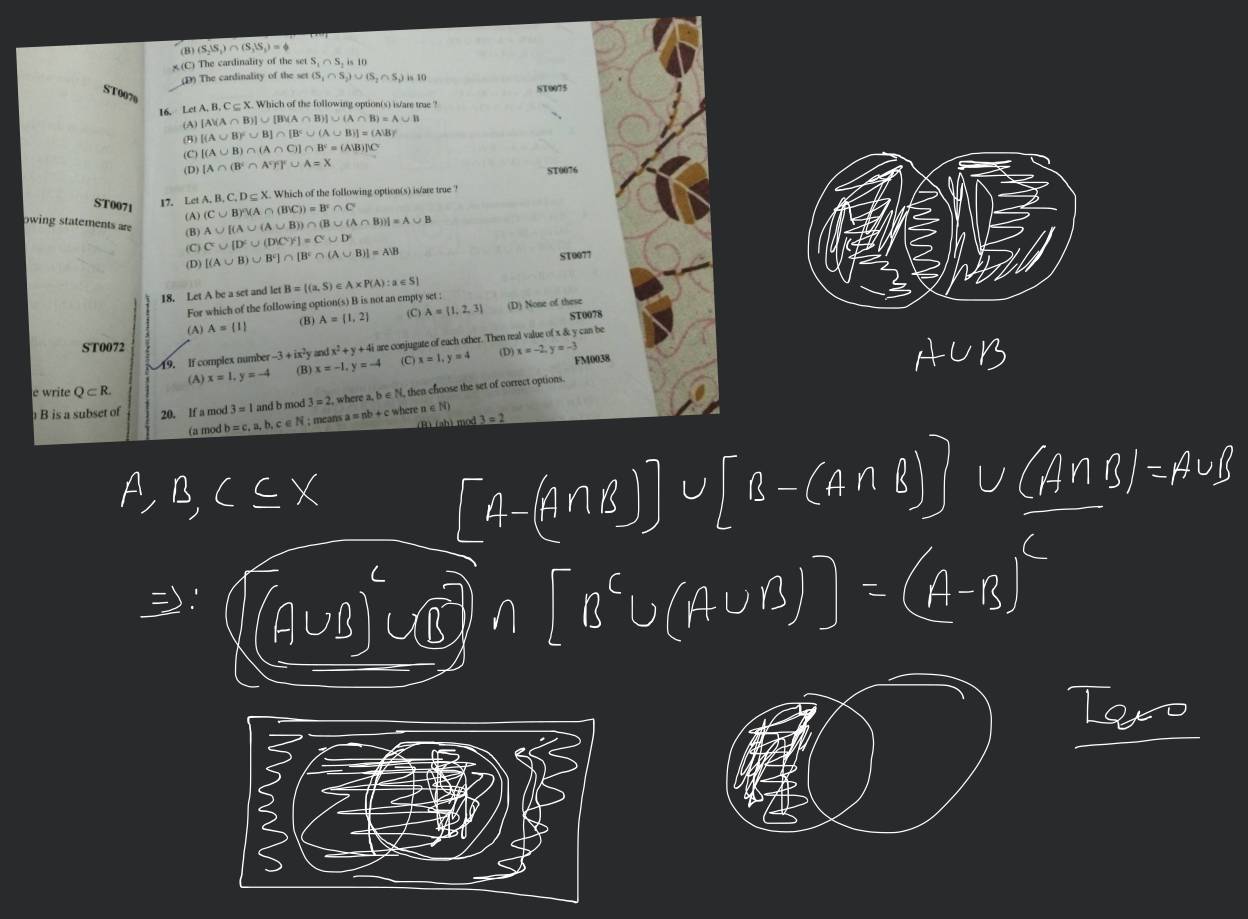 (B) (S₂\S₁) ∩ (S₃\S₁) = ϕ
(C) The cardinality of the set S₁ ∩ S₂ is 10
(D) The cardinality of the set (S₁ ∩ S₃) ∪ (S₂ ∩ S₃) is 10
ST0070
ST0075
16. Let A, B, C ⊆ X. Which of the following option(s) is/are true ?
(A) [A\(A ∩ B)] ∪ [B\(A ∩ B)] ∪ (A ∩ B) = A ∪ B
(B) [(A ∪ B)ᶜ ∪ B] ∩ [Bᶜ ∪ (A ∪ B)] = (A\B)ᶜ
(C) [(A ∪ B) ∩ (A ∩ C)] ∩ Bᶜ = (A\B)\Cᶜ
(D) [A ∩ (Bᶜ ∩ Aᶜ)ᶜ]ᶜ ∪ A = X
ST0076
ST0071
owing statements are
17. Let A, B, C, D ⊆ X. Which of the following option(s) is/are true ?
(A) (C ∪ B)ᶜ\(A ∩ (B\C)) = Bᶜ ∩ Cᶜ
(B) A ∪ [(A ∪ (A ∪ B)) ∩ (B ∪ (A ∩ B))] = A ∪ B
(C) Cᶜ ∪ [Dᶜ ∪ (D\Cᶜ)ᶜ] = Cᶜ ∪ Dᶜ
(D) [(A ∪ B) ∪ Bᶜ] ∩ [Bᶜ ∩ (A ∪ B)] = A\B
ST0077
18. Let A be a set and let B = {(a, S) ∈ A × P(A) : a ∈ S}
For which of the following option(s) B is not an empty set :
(A) A = {1} (B) A = {1, 2} (C) A = {1, 2, 3} (D) None of these
ST0078
ST0072
19. If complex number –3 + ix²y and x² + y + 4i are conjugate of each other. Then real value of x & y can be
(A) x = 1, y = –4 (B) x = –1, y = –4 (C) x = 1, y = 4 (D) x = –2, y = –3
FM0038
e write Q ⊂ R.
B is a subset of
20. If a mod 3 = 1 and b mod 3 = 2, where a, b ∈ N, then choose the set of correct options.
(a mod b = c, a, b, c ∈ N ; means a = nb + c where n ∈ N)
(B) (ab) mod 3 = 2
A∪B
A, B, C ⊆ X
[A-(A∩B)] ∪ [B-(A∩B)] ∪ (A∩B) = A∪B
⇒: [(A∪B)ᶜ ∪ B] ∩ [Bᶜ ∪ (A∪B)] = (A-B)ᶜ